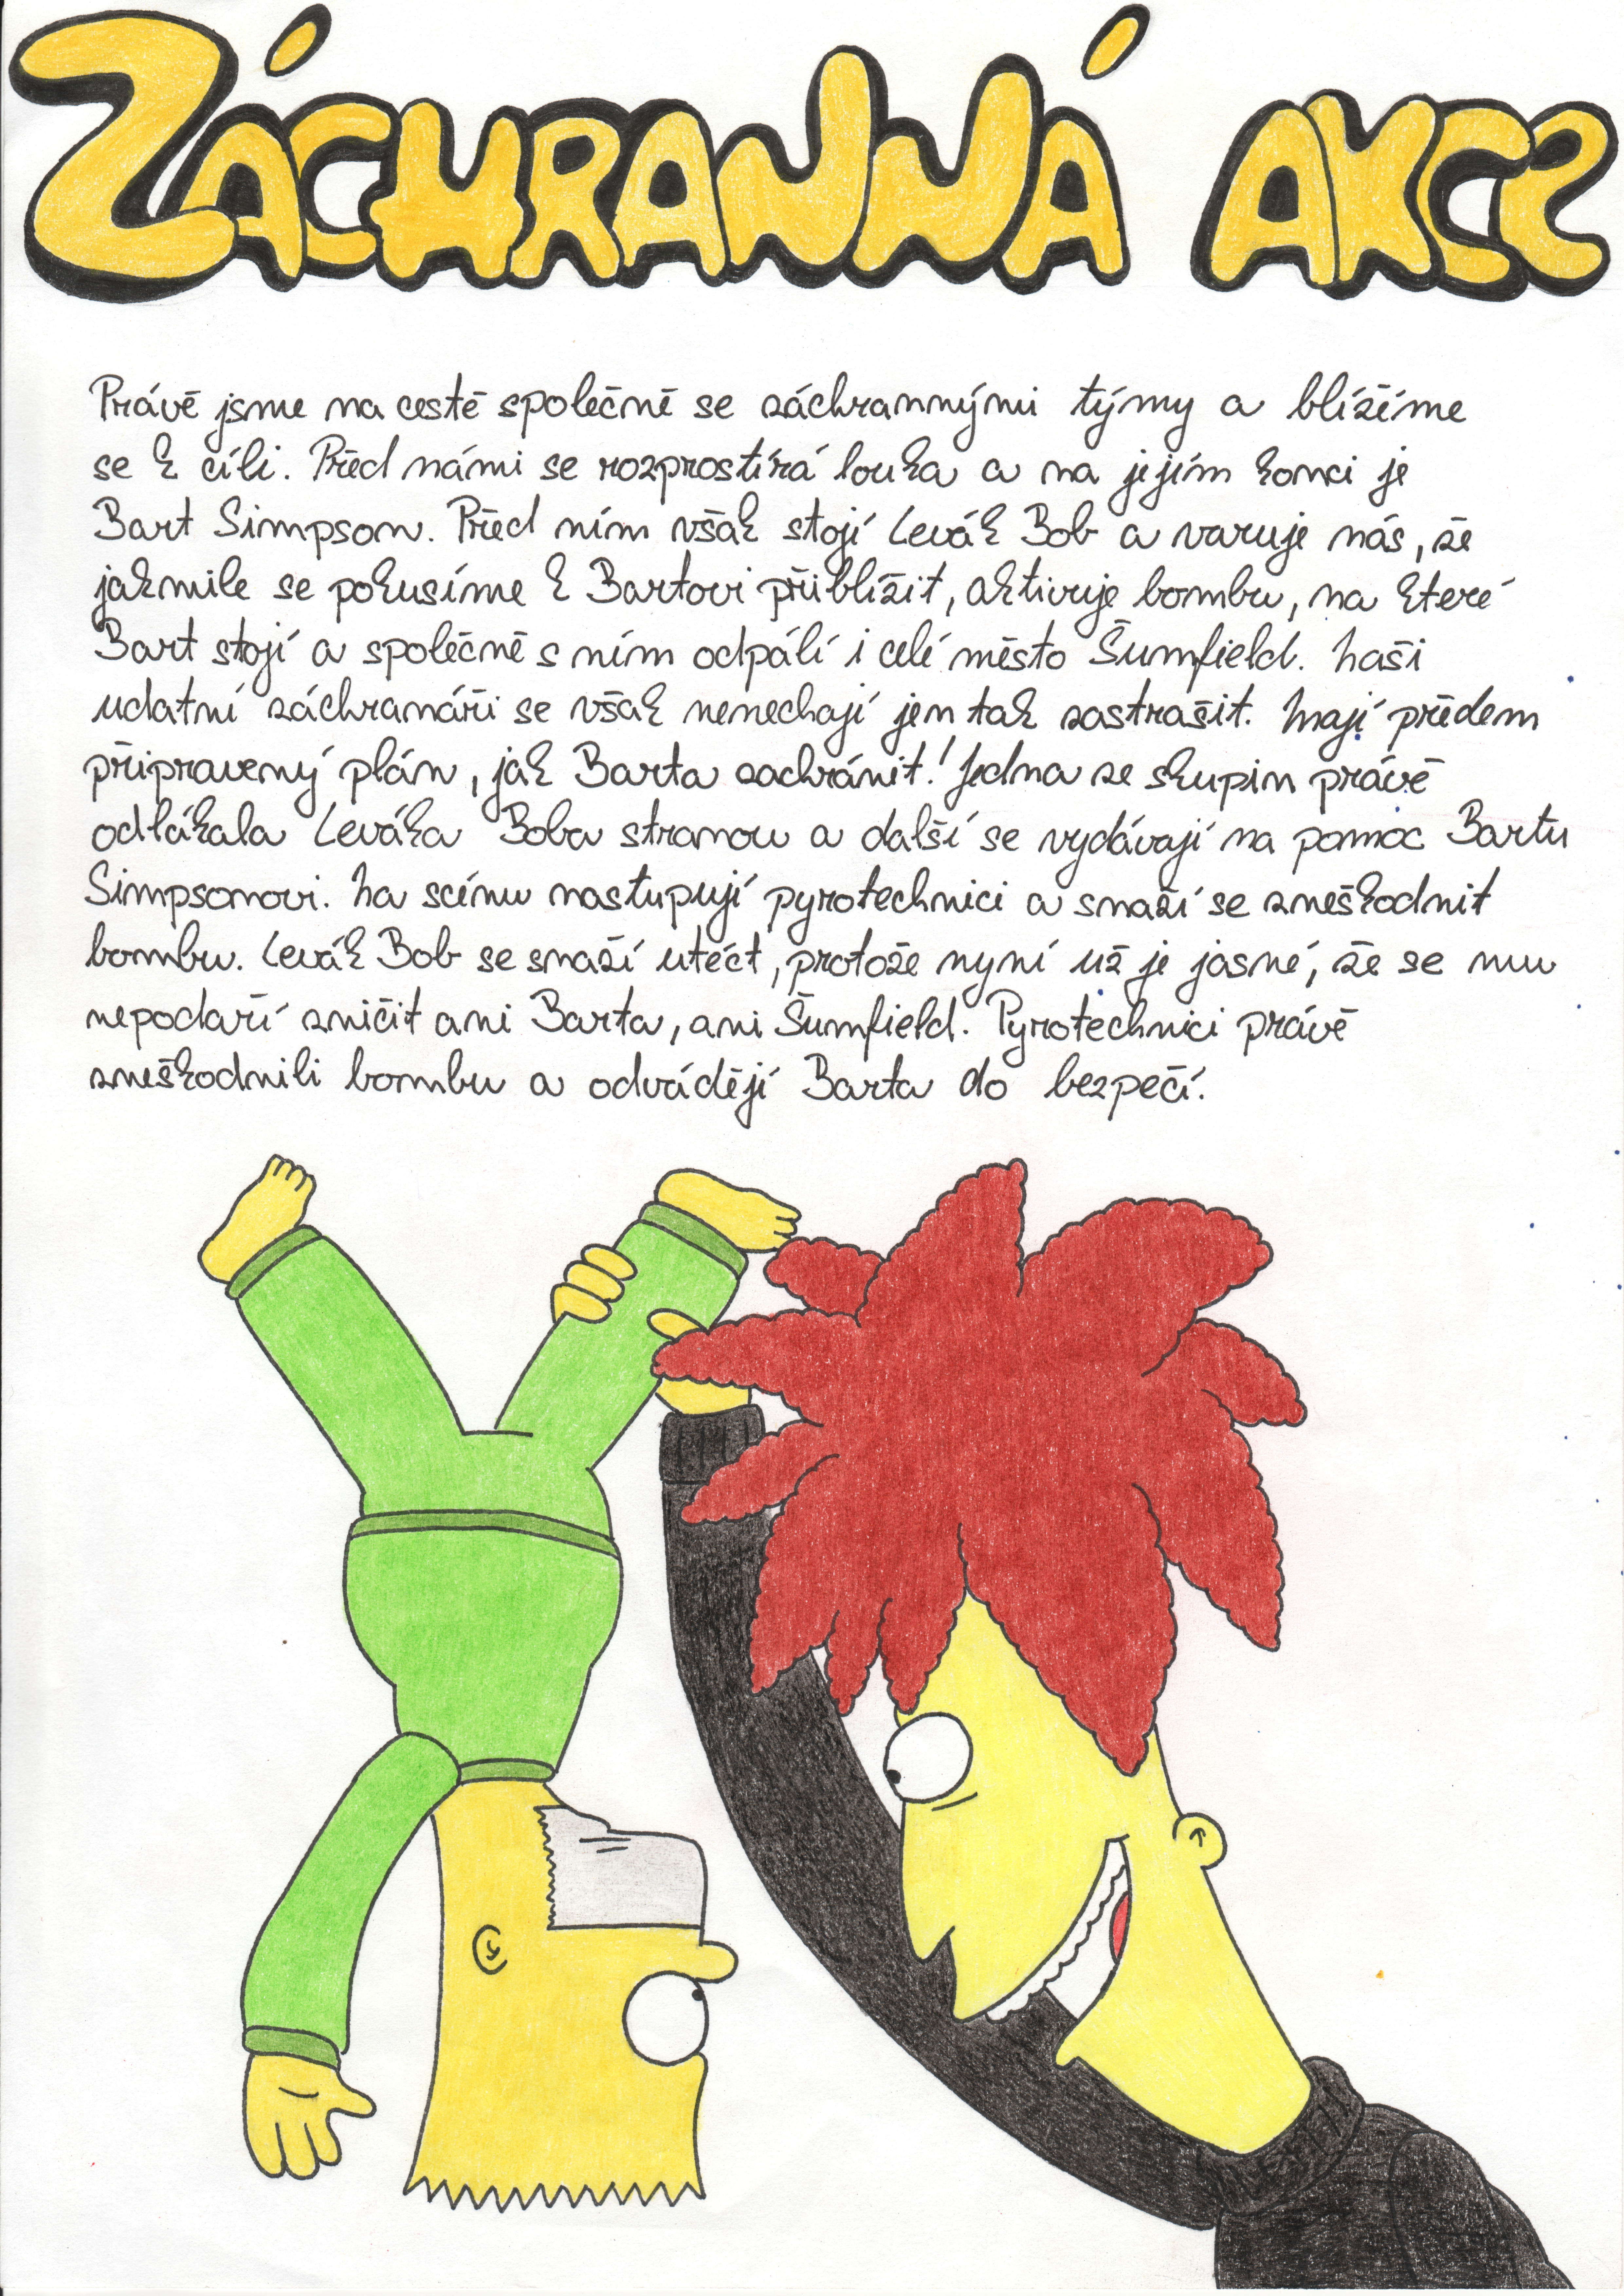 ZÁCHRANNÁ AKCE
Právě jsme na cestě společně se záchrannými týmy a blížíme
se k cíli. Před námi se rozprostírá louka a na jejím konci je
Bart Simpson. Před ním však stojí Levák Bob a varuje nás, že
jakmile se pokusíme k Bartovi přiblížit, aktivuje bombu, na které
Bart stojí a společně s ním odpálí i celé město Šumfield. Naši
udatní záchranáři se však nenechají jen tak zastrašit. Mají předem
připravený plán, jak Barta zachránit! Jedna ze skupin právě
odlákala Leváka Boba stranou a další se vydávají na pomoc Bartu
Simpsonovi. Na scénu nastupují pyrotechnici a snaží se zneškodnit
bombu. Levák Bob se snaží utéct, protože nyní už je jasné, že se mu
nepodaří zničit ani Barta, ani Šumfield. Pyrotechnici právě
zneškodnili bombu a odvádějí Barta do bezpečí.